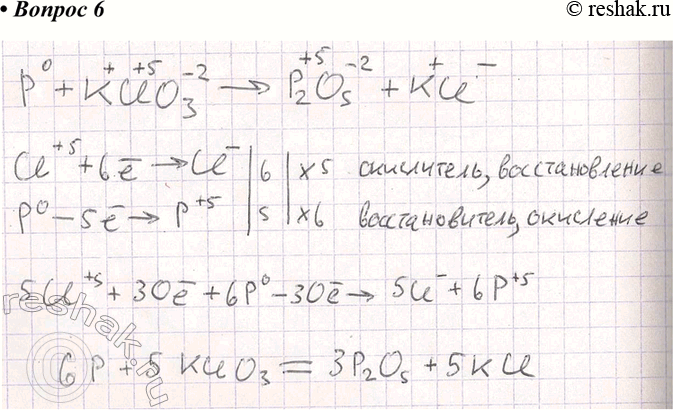 • Вопрос 6
© reshak.ru
P⁰ + K⁺Cl⁺⁵O₃⁻² → P₂⁺⁵O₅⁻² + K⁺Cl⁻
Cl⁺⁵ + 6ē → Cl⁻ | 6 | ×5 окислитель, восстановление
P⁰ − 5ē → P⁺⁵ | 5 | ×6 восстановитель, окисление
5Cl⁺⁵ + 30ē + 6P⁰ − 30ē → 5Cl⁻ + 6P⁺⁵
6P + 5KClO₃ = 3P₂O₅ + 5KCl
reshak.ru